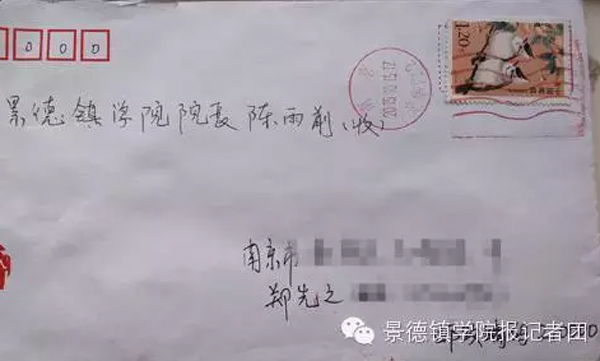 0 0 0
1.20
景德镇学院院长陈雨前(收)
南京市
郑先之
景德镇学院报记者团